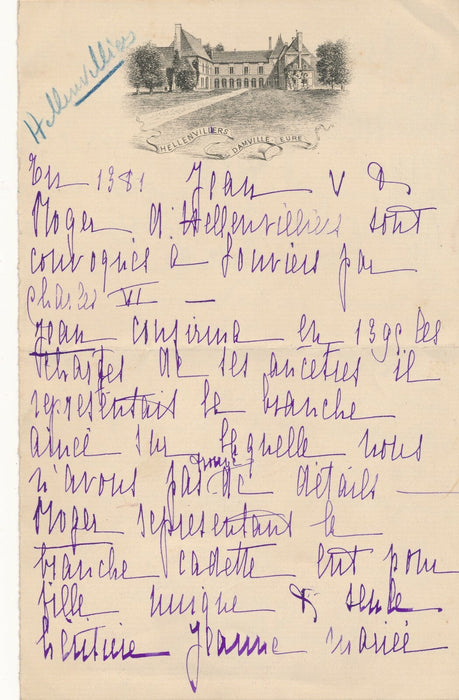 Hellenvilliers
HELLENVILLIERS
DAMVILLE EURE
En 1381 Jean V &
Roger d'Hellenvilliers sont
convoqués a Louviers par
Charles VI —
Jean confirma en 1399 les
chartes de ses ancêtres il
représentait la branche
ainée sur laquelle nous
trouvé
n'avons pas de détails —
Roger représentant la
branche cadette eut pour
fille unique & seule
héritière Jeanne mariée